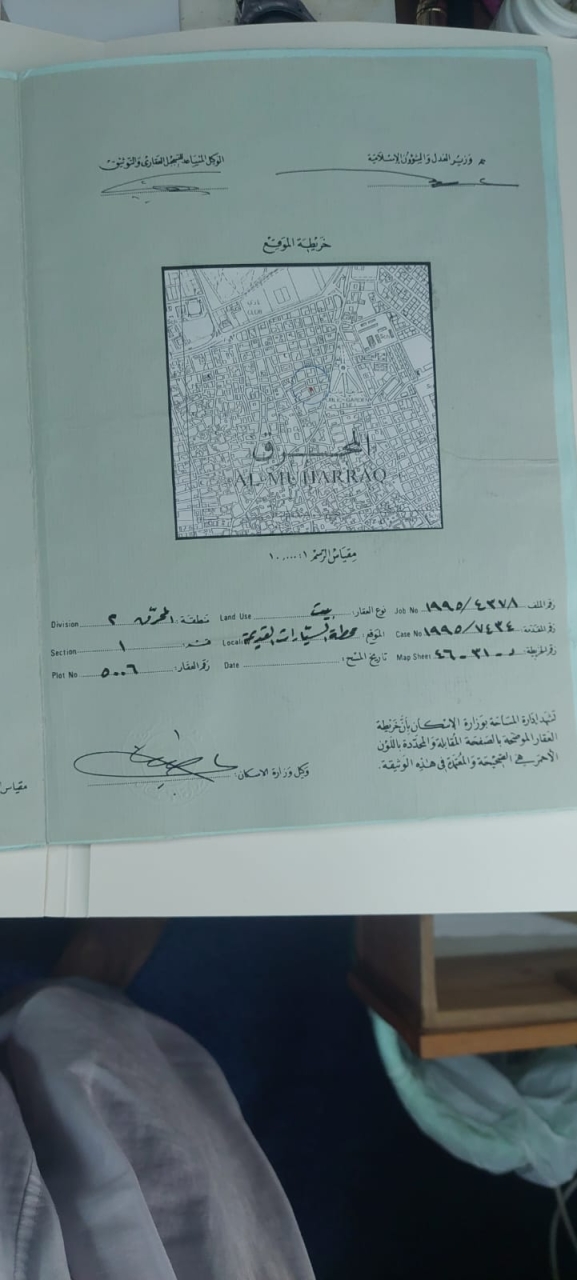 وزير العدل والشؤون الإسلامية
الوكيل المساعد للتسجيل العقاري والتوثيق
خريطة الموقع
المحرق
AL MUHARRAQ
مقياس الرسم ١:١٠,٠٠٠
رقم الملف ١٩٩٥/٤٣٧٨ Job No نوع العقار: بيت Land Use منطقة: المحرق ٢ Division
رقم المقدمة ١٩٩٥/٧٤٣٤ Case No الموقع: محطة السيارات القديمة Local قسم: ١ Section
رقم الخريطة: Map Sheet تاريخ المسح: Date رقم العقار: ٥٠٠٦ Plot No
تشهد إدارة المساحة بوزارة الإسكان بأن خريطة
العقار الموضحة بالصفحة المقابلة والمحددة باللون
الأحمر هي الصحيحة والمعتمدة في هذه الوثيقة.
وكيل وزارة الاسكان: